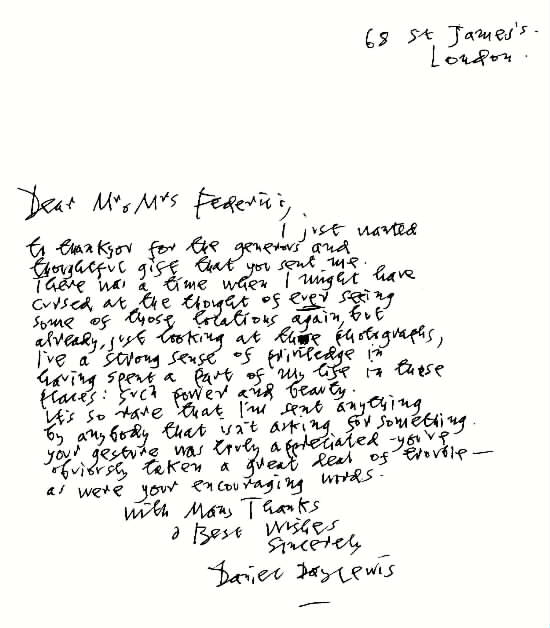 68 St James's.
London.
Dear Mr & Mrs Federici,
I just wanted
to thankyou for the generous and
thoughtful gift that you sent me.
There was a time when I might have
cursed at the thought of ever seeing
some of those locations again, but
already, just looking at those photographs,
I've a strong sense of priviledge in
having spent a part of my life in those
places: such power and beauty.
It's so rare that I'm sent anything
by anybody that isn't asking for something.
your gesture was truly appreciated - you've
obviously taken a great deal of trouble —
as were your encouraging words.
With Many Thanks
& Best Wishes
Sincerely
Daniel Day Lewis